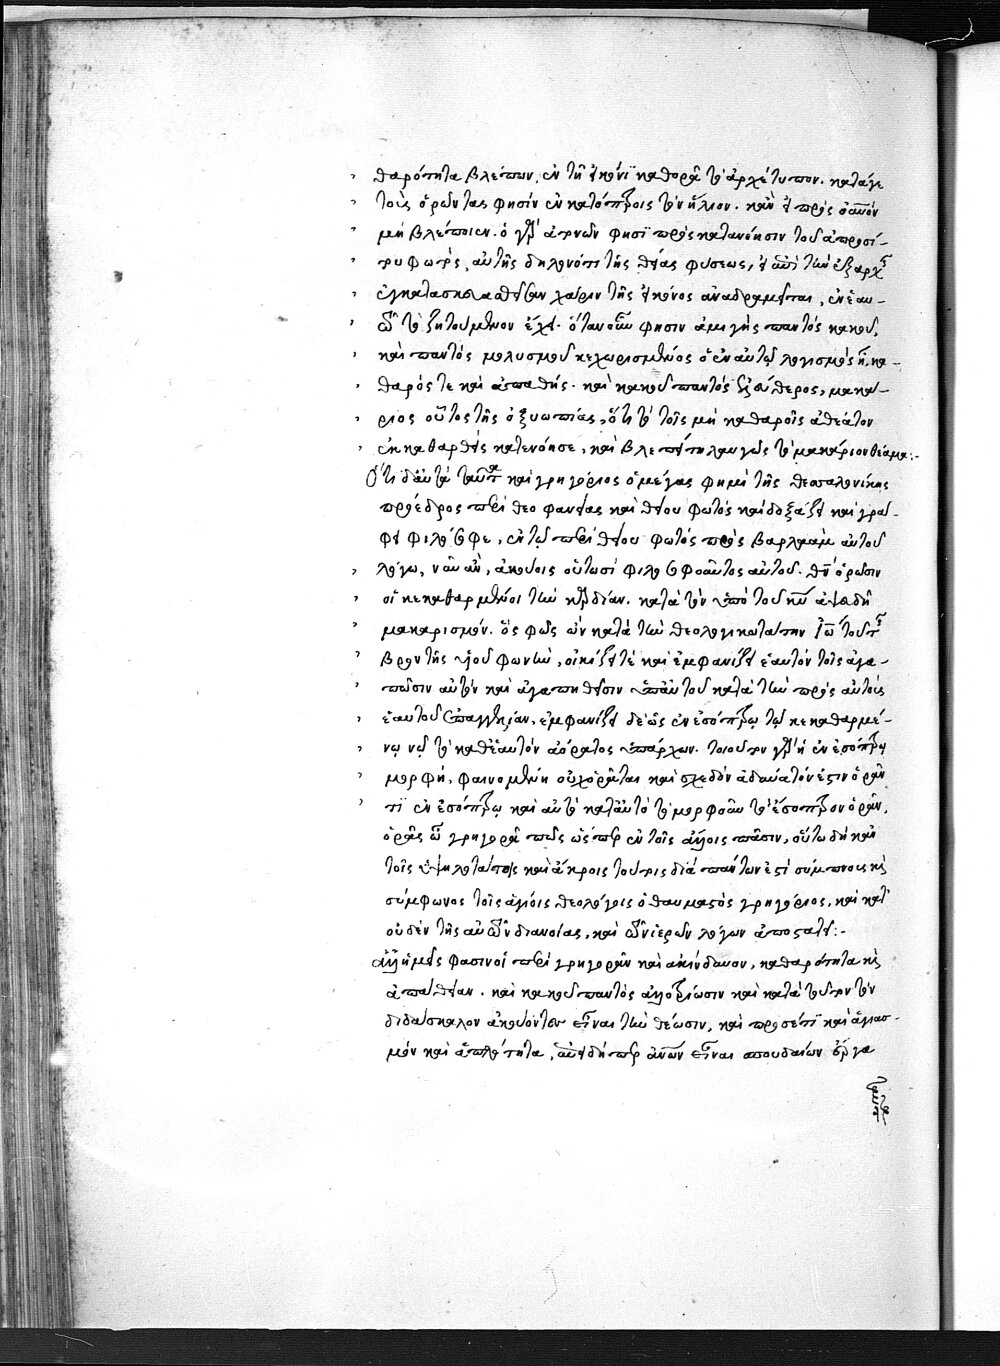 θαρότητα βλέπων, ἐν τῇ εἰκόνι καθορᾷ τὸ ἀρχέτυπον. καὶ γε
τοῖς ὁρῶντας φησὶν ἐν κατόπτροις τὸν ἥλιον. κἂν εἰ πρὸς οὐρανὸν
μὴ βλέποιεν. ὁ γὰρ φησὶ πρὸς κατανόησιν τοῦ ἀπροσί-
του φωτὸς, αὐτῆς δηλονότι τῆς θείας φύσεως, εἰ ἐπὶ τὴν ἐξαρχῆς
ἐγκατασκευασθεῖσαν χάριν τῆς εἰκόνος ἀναδράμηται, ἐν ἑαυ-
τῷ τὸ ζητούμενον ἔχει. ὅταν οὖν φησὶν ἀμιγὴς παντὸς κακοῦ,
καὶ παντὸς μολυσμοῦ κεχωρισμένος ὁ ἐν αὐτῷ λογισμὸς ᾖ, κα-
θαρός τε καὶ ἀπαθής. καὶ κακοῦ παντὸς ἐλεύθερος, μακά-
ριος οὗτος τῆς ὀξυωπίας, ὅτι τὸ τοῖς μὴ καθαροῖς ἀθέατον
ἐκκαθαρθεὶς κατενόησε, καὶ βλέπει τηλαυγῶς τὸ μακάριον θέαμα:-
Ὅτι δὲ αὐτὰ ταῦτα καὶ γρηγόριος ὁ μέγας φημὶ τῆς θεσσαλονίκης
πρόεδρος περὶ θεοφανείας καὶ θείου φωτὸς καὶ δοξάζει καὶ γρά-
φει φιλόσοφε, ἐν τῷ περὶ θείου φωτὸς πρὸς βαρλαὰμ αὐτοῦ
λόγῳ, ἀκούοις οὑτωσὶ φιλοσοφοῦντος αὐτοῦ. θεὸν ὁρῶσιν
οἱ κεκαθαρμένοι τὴν καρδίαν. κατὰ τὸν ὑπὸ τοῦ κυρίου ἀψευδῆ
μακαρισμόν. ὃς φῶς ὢν κατὰ τὴν θεολογικωτάτην ἰωάννου τοῦ τῆς
βροντῆς υἱοῦ φωνὴν, οἰκίζει τὲ καὶ ἐμφανίζει ἑαυτὸν τοῖς ἀγα-
πῶσιν αὐτὸν καὶ ἀγαπηθεῖσιν ὑπ' αὐτοῦ κατὰ τὴν πρὸς αὐτοὺς
ἑαυτοῦ ἐπαγγελίαν, ἐμφανίζει δὲ ὡς ἐν ἐσόπτρῳ τῷ κεκαθαρμέ-
νῳ νῷ τὸ καθ' ἑαυτὸν ἀόρατος ὑπάρχων. τοιοῦτον γὰρ ἡ ἐν ἐσόπτρῳ
μορφή. φαινομένη οὐχ ὁρᾶται καὶ σχεδὸν ἀδύνατόν ἐστιν ὁρᾶν
τι ἐν ἐσόπτρῳ καὶ αὐτὸ καταυτὸ τὸ μορφοῦν τὸ ἔσοπτρον ὁρᾶν.
ὁρᾷς ὦ γρηγορᾶ πῶς ὥσπερ ἐν τοῖς ἄλλοις πᾶσιν, οὕτω δὴ κἂν
τοῖς ὑψηλοτάτοις καὶ ἄκροις τούτοις διὰ πάντων ἐστὶ σύμπνους καὶ
σύμφωνος τοῖς ἁγίοις θεολόγοις ὁ θαυμαστὸς γρηγόριος, καὶ κατ'
οὐδὲν τῆς αὐτῶν διανοίας, καὶ τῶν ἱερῶν λόγων ἀποστατεῖ:-
ἀλλ' ἡμεῖς φασὶν οἱ περὶ γρηγορᾶν καὶ ἀκίνδυνον, καθαρότητα καὶ
ἀπάθειαν. καὶ κακοῦ παντὸς ἀλλοτρίωσιν καὶ κατὰ τοῦτον τὸν
διδάσκαλον ἀκούοντες εἶναι τὴν θέωσιν, καὶ προσέτι καὶ ἁγιασ-
μὸν καὶ ἁπλότητα, εἶναι σπουδαίων ἔργα